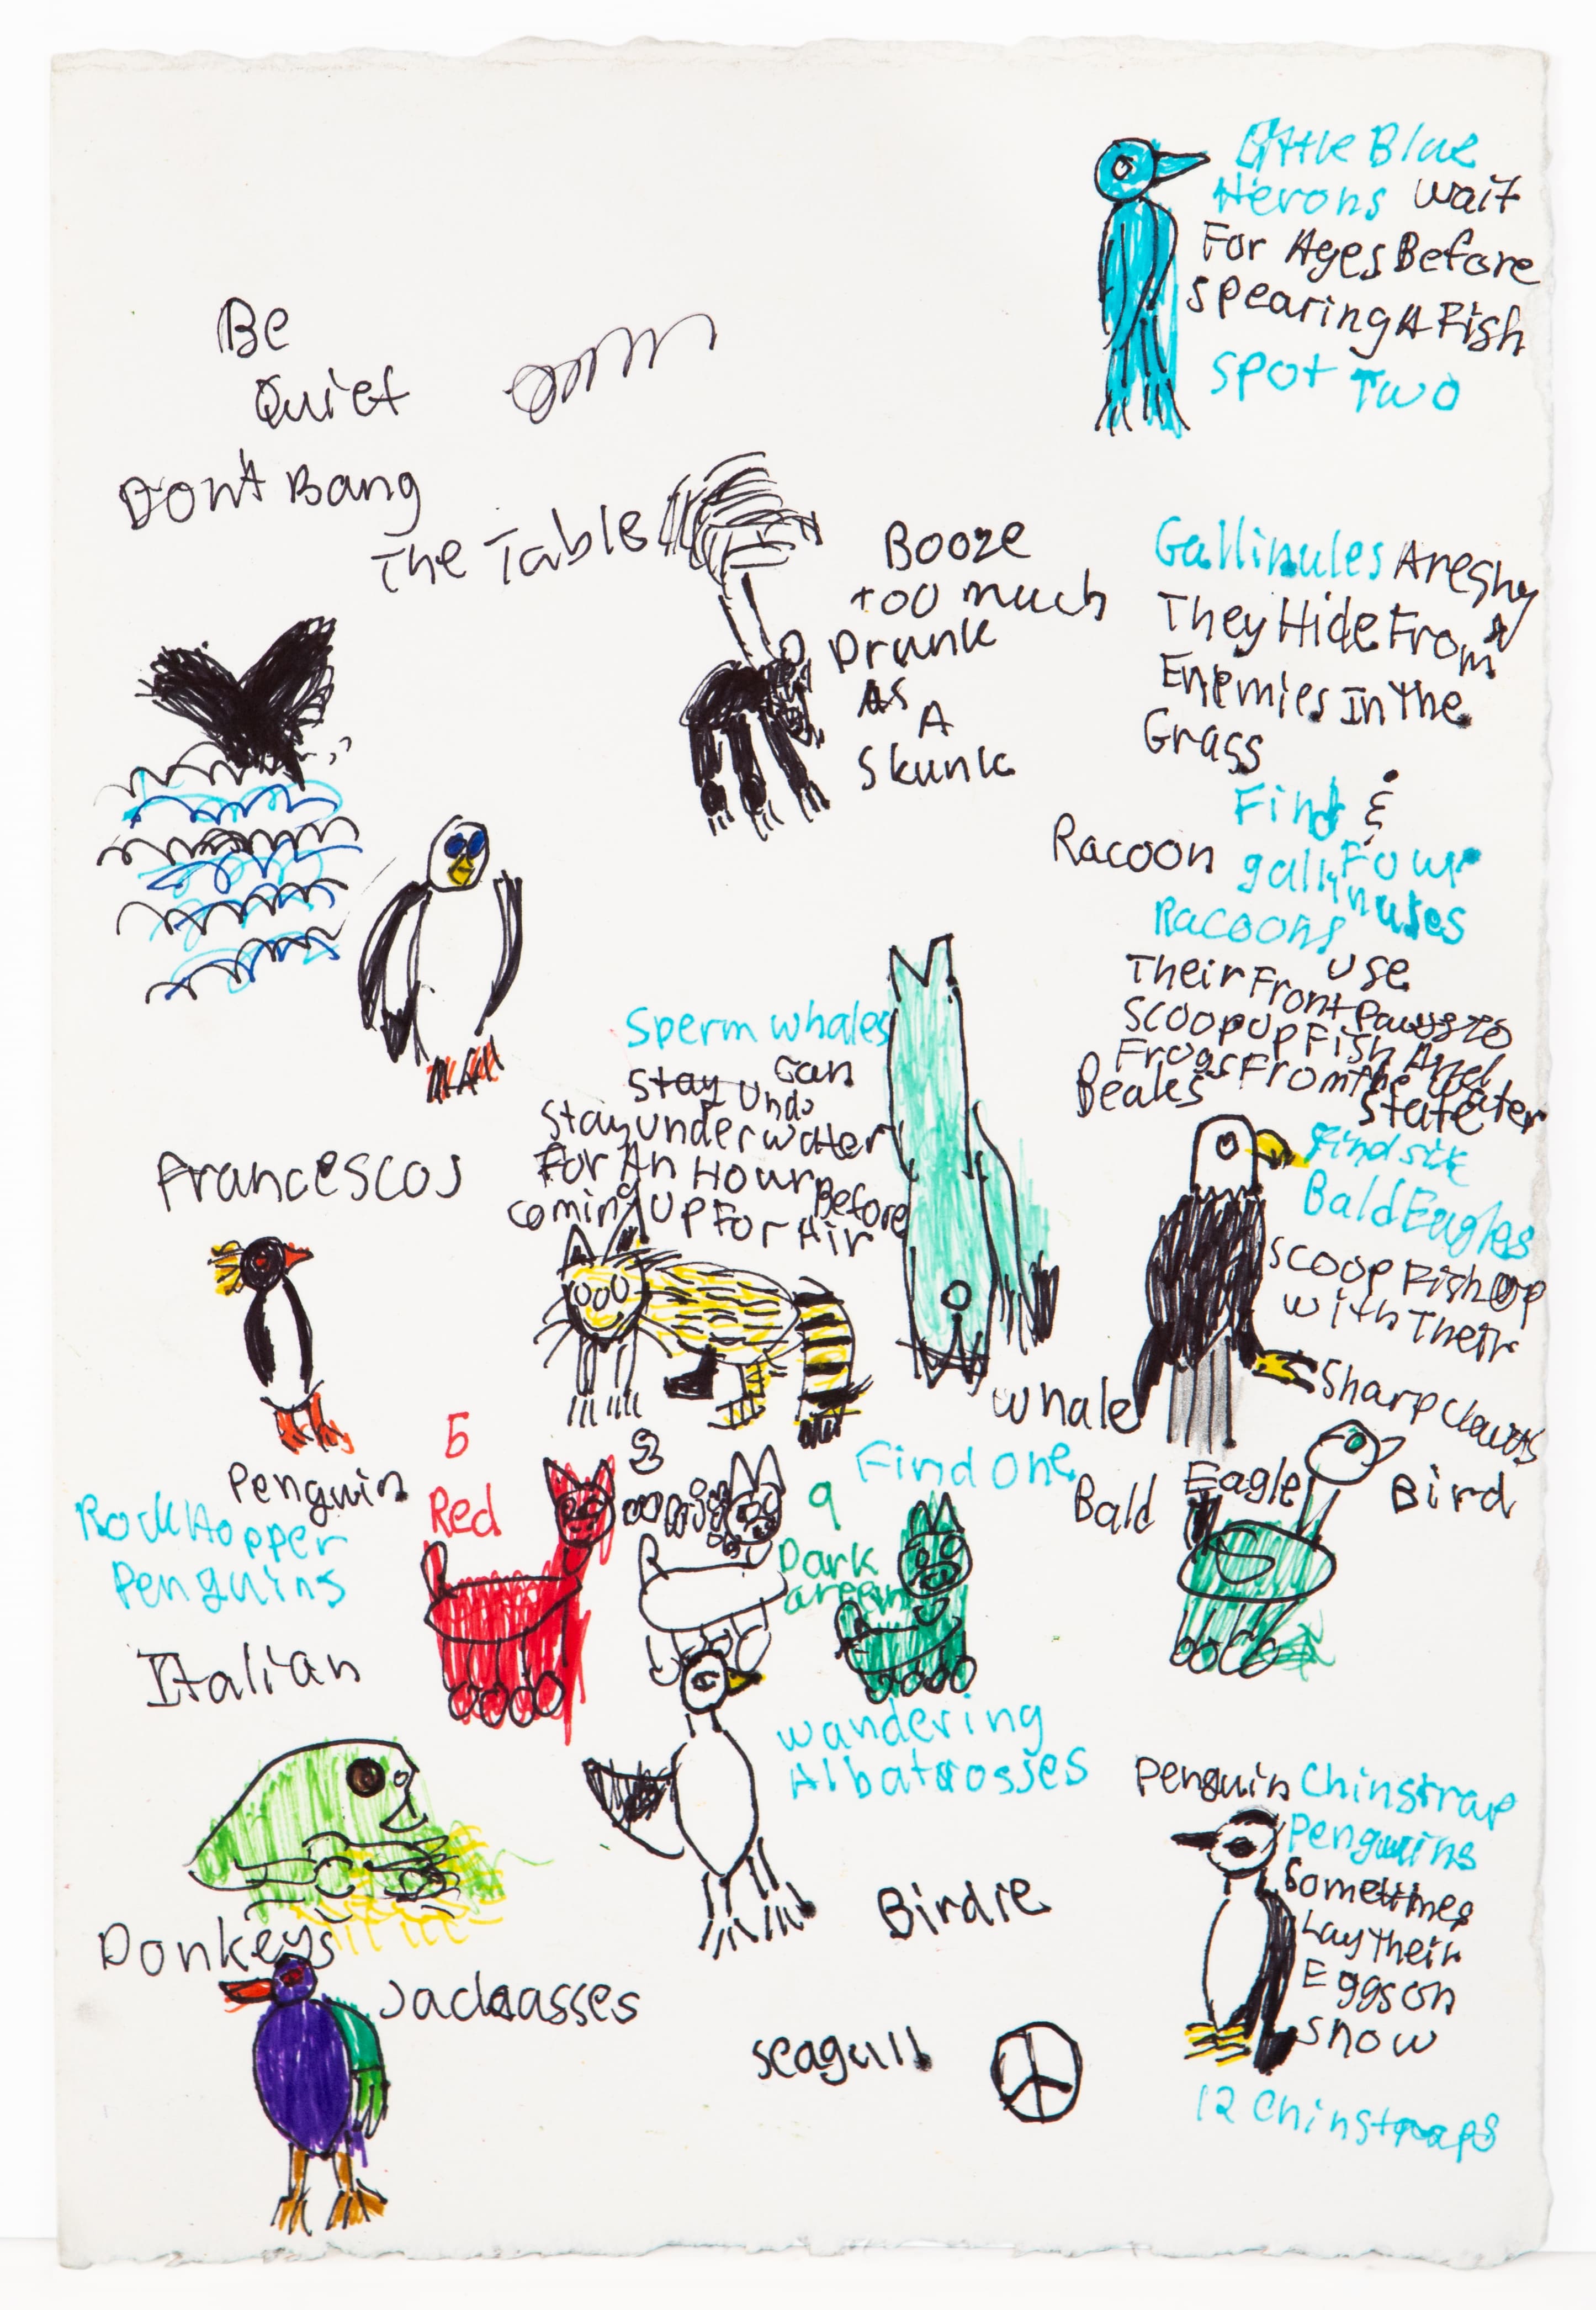 Little Blue
Herons wait
For Ages Before
spearing A Fish
spot Two
Be
Quiet
Don't Bang
The Table
Booze
too much
Drunk
As
A
Skunk
Gallinules Are shy
They Hide From
Enemies In The
Grass
Find &
Racoon Four
gallinules
Racoons
use
Their Front Paws To
Scoop Up Fish And
Frogs From The Water
Beaks
State
Sperm whales
Can
Stay Und
Stay under water
For An Hour Before
coming Up For Air
Find six
Bald Eagles
Scoop Fish Up
with Their
Sharp claws
whale
Francescos
Penguin
Rock Hopper
Penguins
Italian
5
Red
8
9
Dark
green
Find One
Bald Eagle
Bird
wandering
Albatrosses
Birdie
Donkeys
Jackasses
seagull
Penguin Chinstrap
Penguins
Sometimes
Lay Their
Eggs on
snow
12 Chinstraps